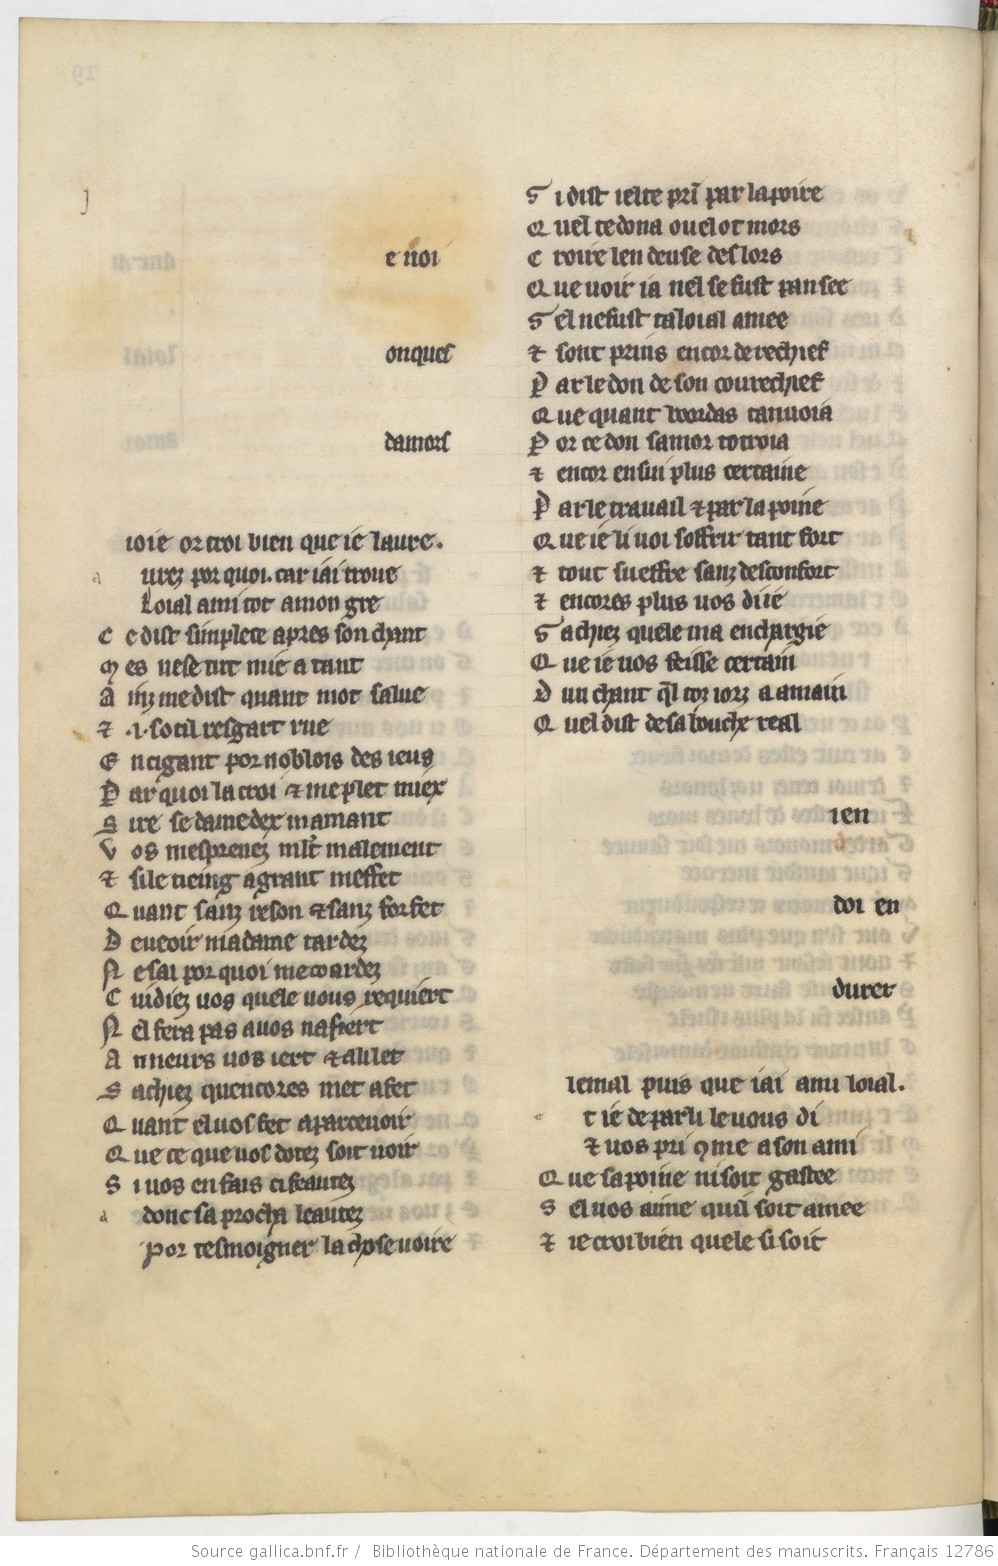 e noi
onques
damors
ioie or croi bien que ie laure.
a urez por quoi. car iai troue
Loial ami tot a mon gre
C e dist simplete apres son chant
M es ne se tut mie a tant
A inz me dist quant mot salue
⁊ .i. so cil resgart rue
E n cigant por noblois des ieus
P ar quoi la croi ⁊ me plet miex
S ire se damedex mamant
V os mesprenez mlt malement
⁊ si le tieing a grant meffet
Q uant sanz reson ⁊ sanz forfet
D e veoir ma dame tardez
N e sai por quoi me coardez
C uidiez uos quele uous requiert
N el fera pas a uos nafiert
A nneurs uos iert ⁊ a li let
S achiez quencores met a fet
Q uant el uos fet aparcevoir
Q ue ce que uos dotez soit uoir
S i uos en fais ci feautez
a donc sa procha leautez
por tesmoigner la chose uoire
S i dist ielte pri par la poire
Q uel te dona ou el ot mors
C roire len deusse des lors
Q ue uoir ia nel se fust pansee
S el ne fust ta loial amee
⁊ sont prins encor de rechief
P ar le don de son couvrechief
Q ue quant boordas tanuoia
P or ce don samor totroia
⁊ encor en sui plus certaine
P ar le travail ⁊ par la poine
Q ue ie li uoi soffrir tant fort
⁊ tout sueffre sanz desconfort
⁊ encores plus uos di ie
S achiez quele ma enchargie
Q ue ie uos feisse certain
D un chant ql coz iorz a a main
Q uel dist de sa bouche real
ien
doi en
durer
le mal puis que iai ami loial.
e t ie de par li le uous di
⁊ uos pri 9me a son ami
Q ue sa poine ni soit gastee
S el uos aime quil soit amee
⁊ ie croi bien quele si soit
Source gallica.bnf.fr / Bibliothèque nationale de France. Département des manuscrits. Français 12786